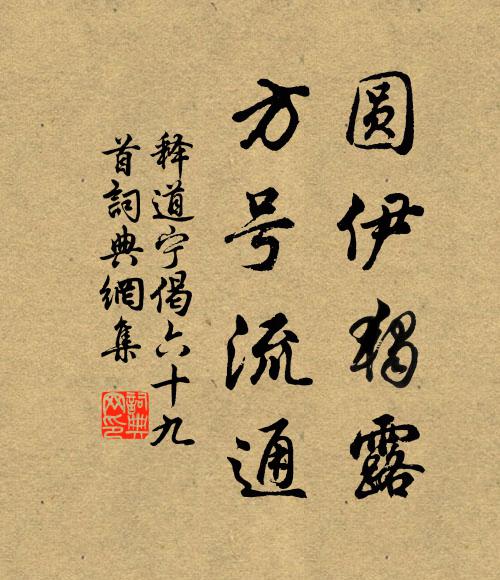 圆伊独露
方号流通
释道宁偈六十九
首詞典網集
詞典
网印